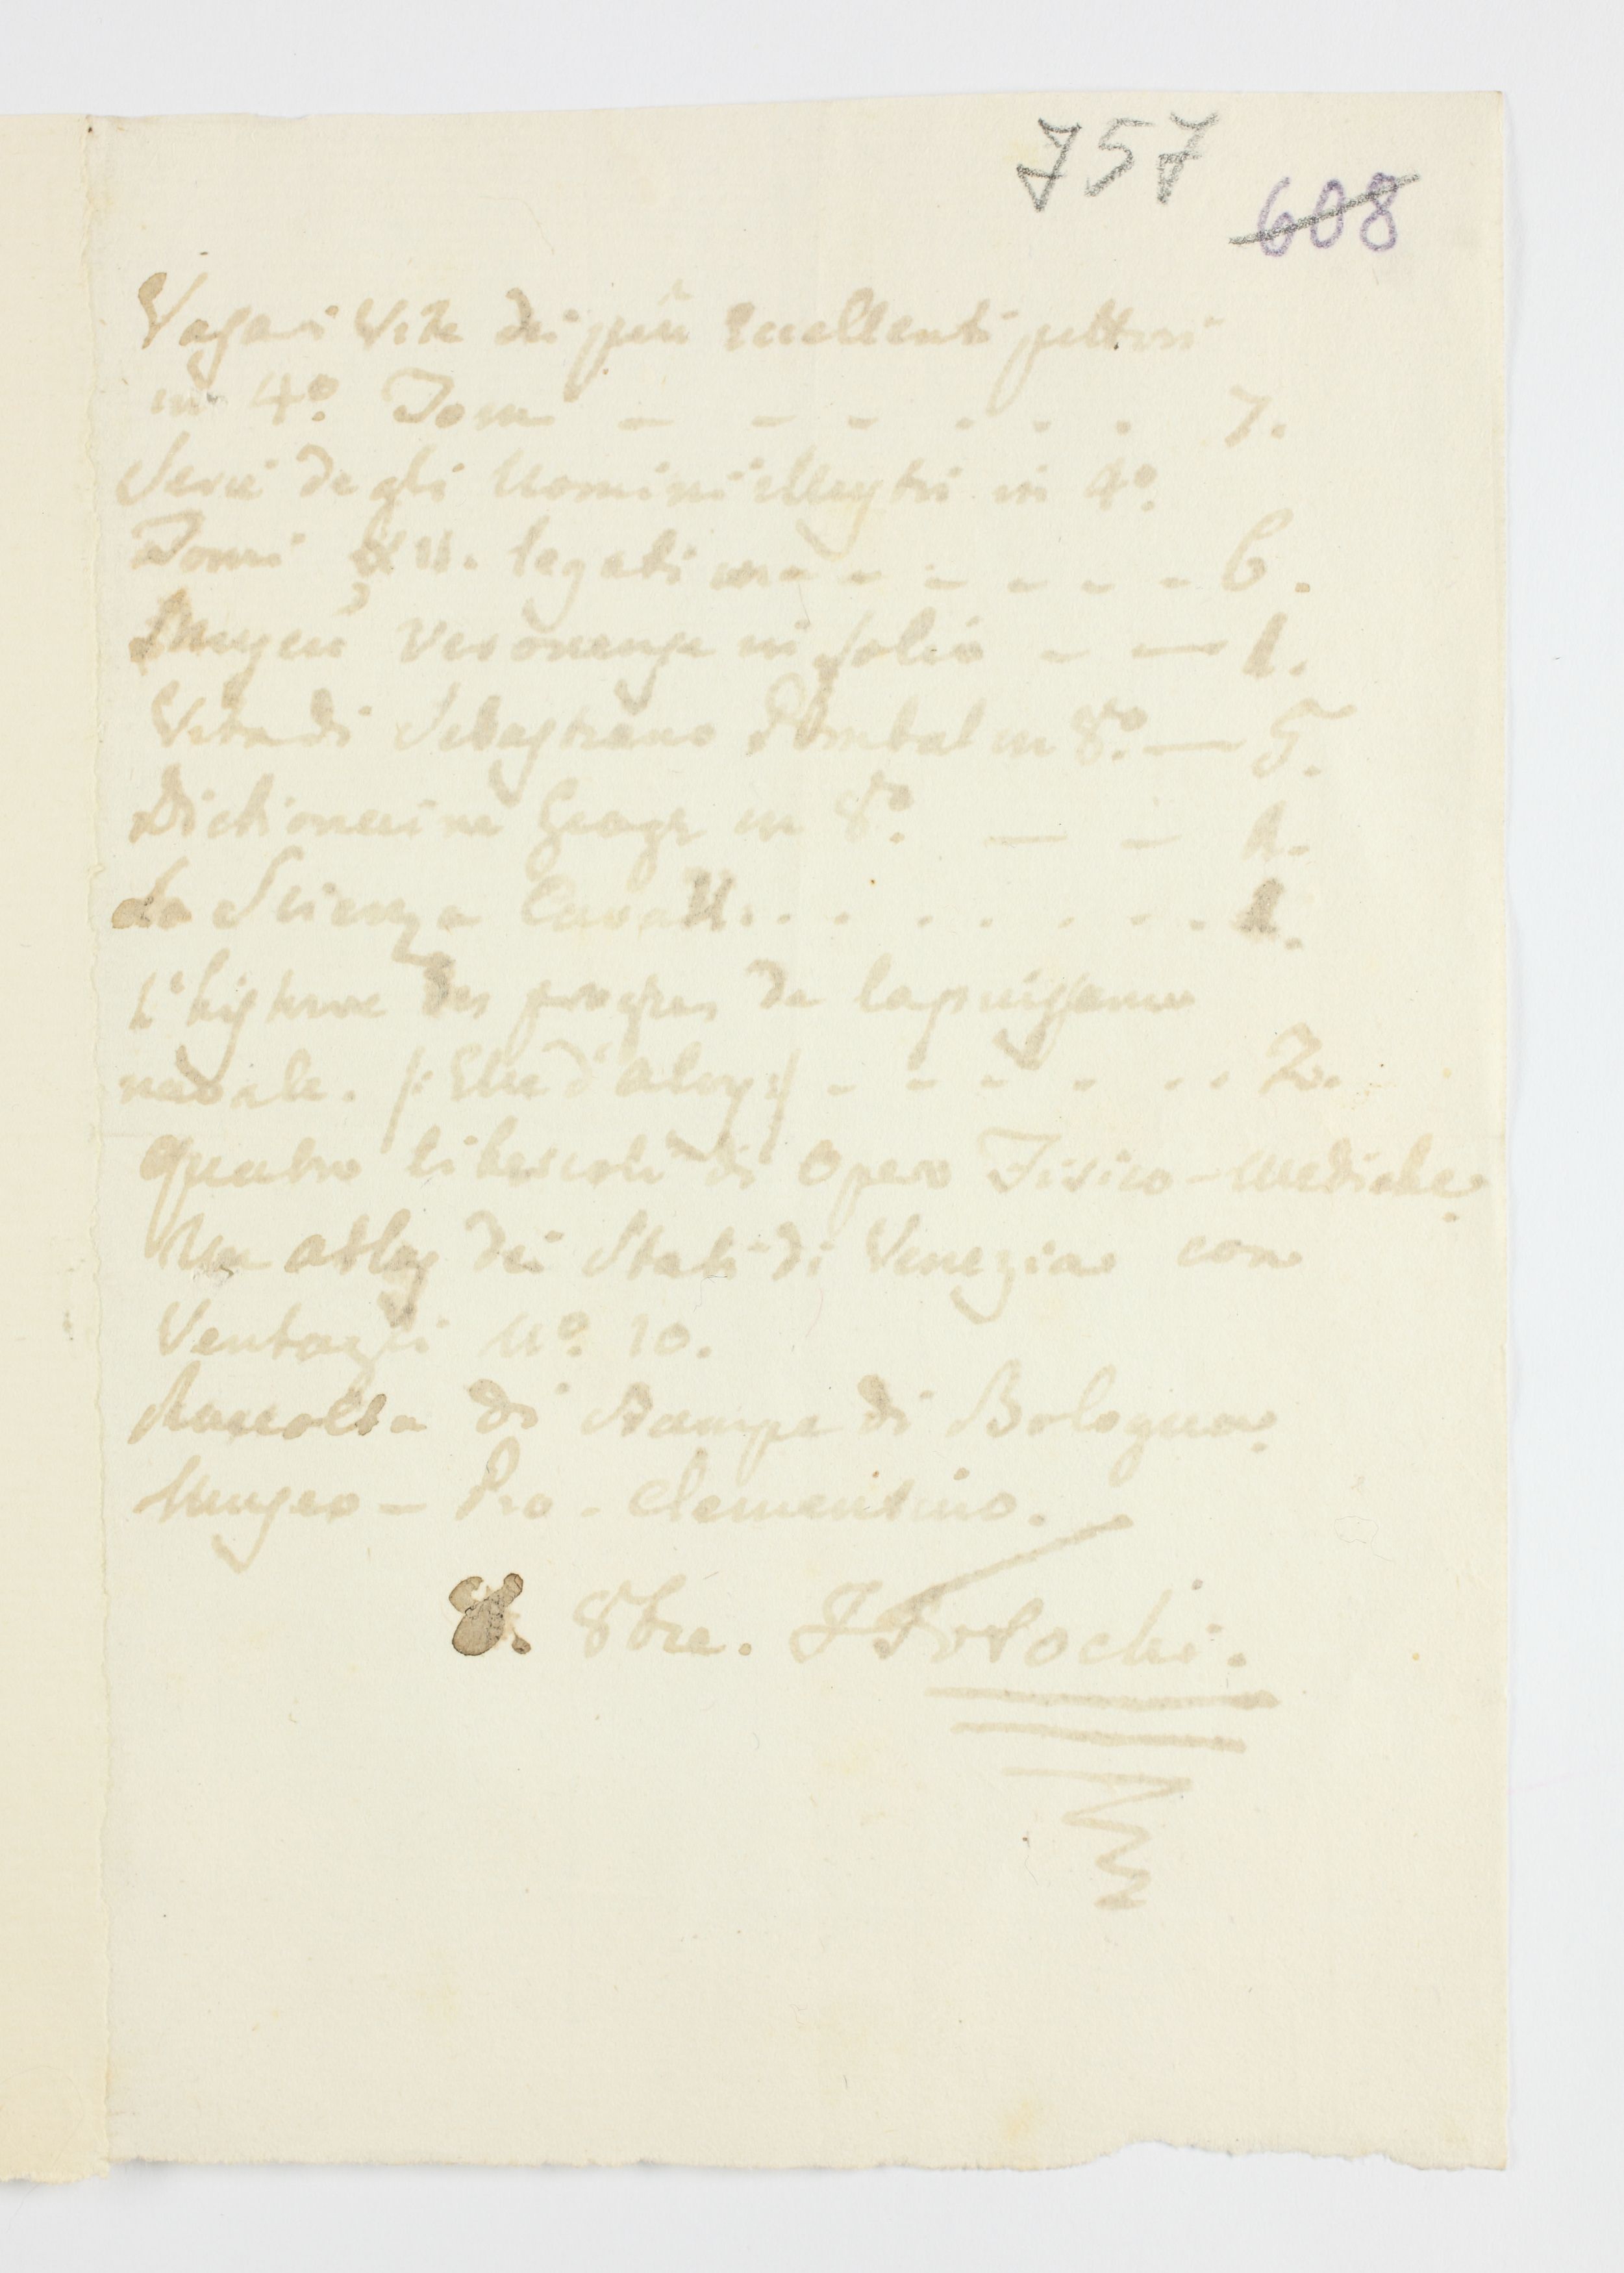 757
608
Vasari Vite dei più Excellenti pittori
in 4º. Tom — — — . . . . 7.
Serie degli Uomini illustri in 4º.
Tomi XII. legati in - - - - - - 6.
Museu Veronense in folio — — 1.
Vita di Sebastiano Pombal in 8º. — 5.
Dictionaire Geogr in 8º. — — 1.
La Scienza Cavall. . . . . . . . 1.
L'histoire des progres de la puissance
navale. /: Elie d'Alby :/ - - - - . . . 2.
Quatro libercoli di Opero Fisico-Mediche.
Un atlas dei Stati di Venezia con
Ventagli Nº. 10.
Raccolta di Stampe di Bologna.
Museo - Pio - Clementino.
8bre.